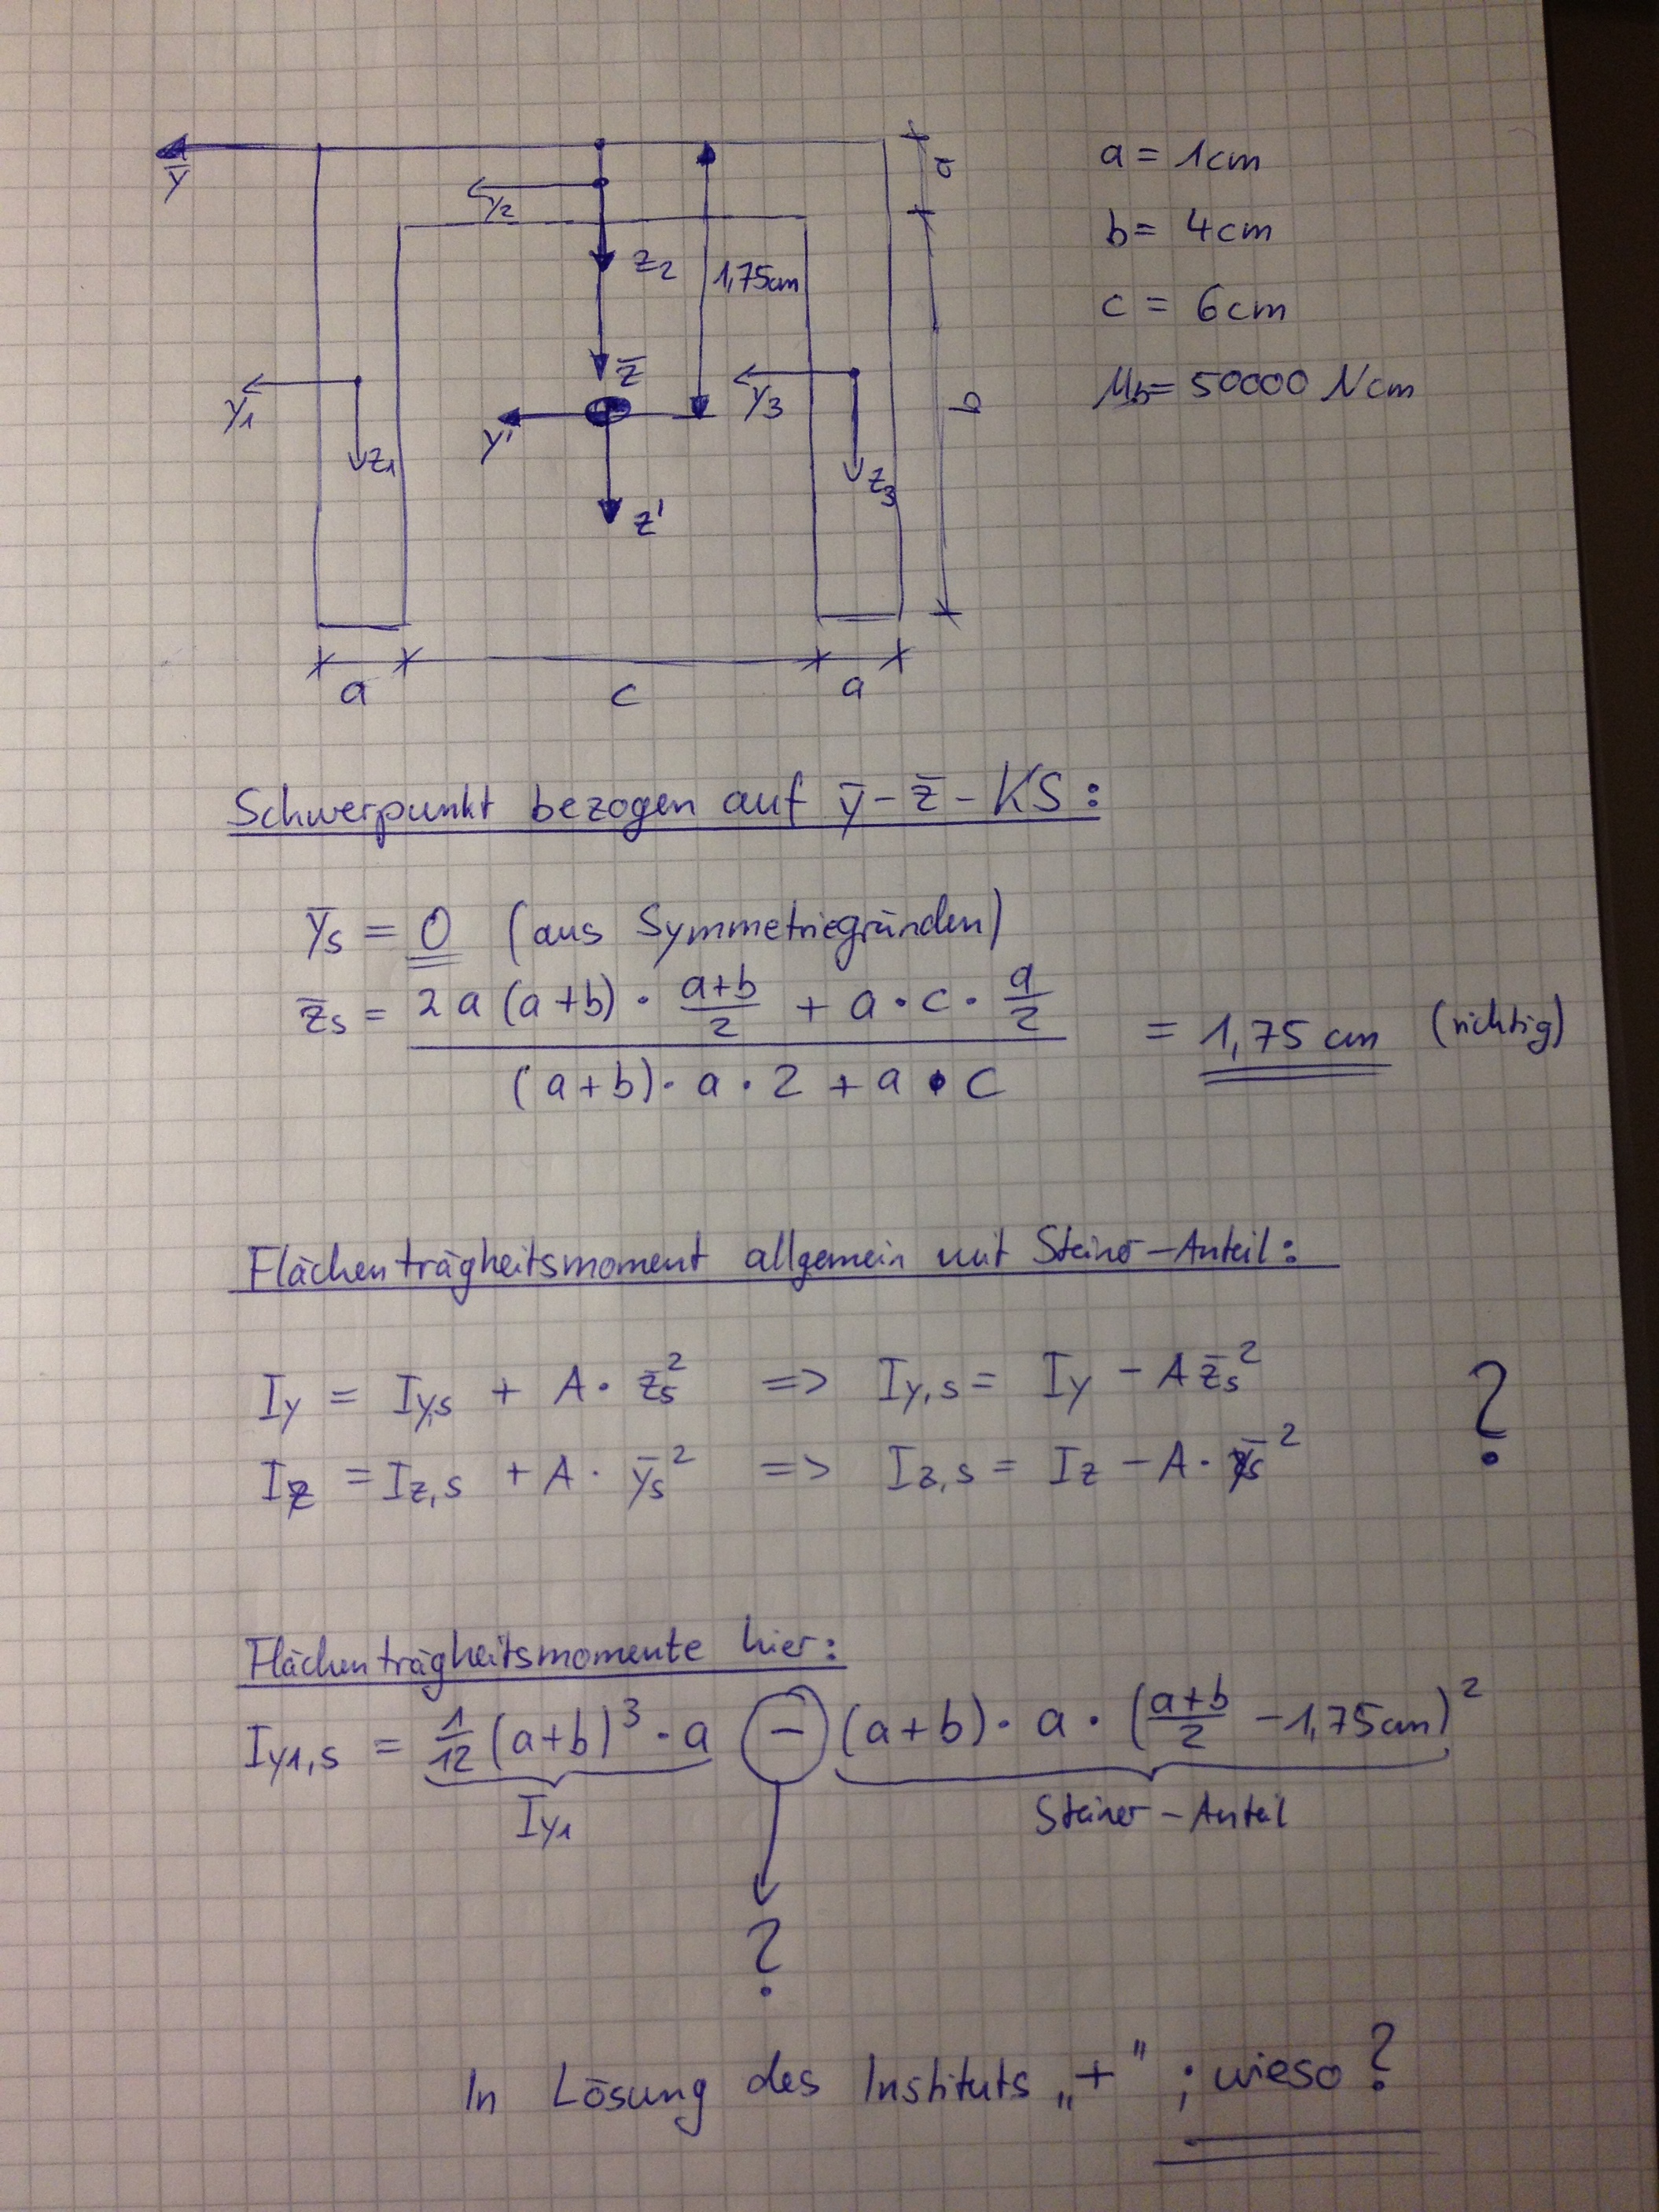 ȳ
y₂
z₂
1,75cm
a
z̄
y₁
z₁
y'
z'
y₃
z₃
b
a
c
a
a = 1cm
b = 4cm
c = 6cm
M_b = 50000 Ncm
Schwerpunkt bezogen auf ȳ - z̄ - KS:
ȳ_s = 0 (aus Symmetriegründen)
z̄_s = (2a(a+b) · (a+b)/2 + a · c · a/2) / ((a+b) · a · 2 + a · c) = 1,75 cm (richtig)
Flächenträgheitsmoment allgemein mit Steiner-Anteil:
I_y = I_y,s + A · z̄_s² => I_y,s = I_y - A z̄_s² ?
I_z = I_z,s + A · ȳ_s² => I_z,s = I_z - A · ȳ_s²
Flächenträgheitsmomente hier:
I_y1,s = 1/12 (a+b)³ · a - (a+b) · a · ((a+b)/2 - 1,75cm)²
I_y1
Steiner-Anteil
?
In Lösung des Instituts „+" ; wieso?